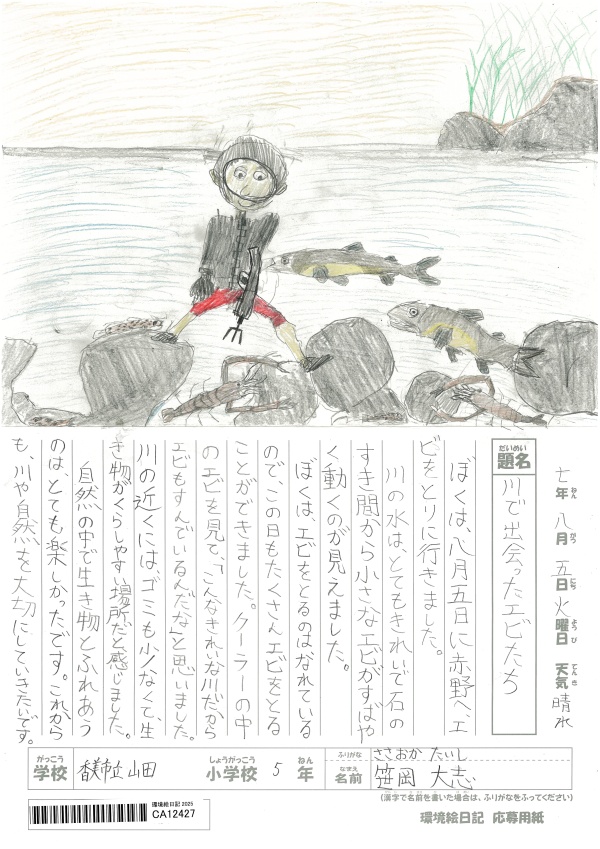 七年八月五日火曜日 天気 晴れ
ねん がつ にち ようび てんき
だいめい
題名
川で出会ったエビたち
ぼくは、八月五日に赤野へ、エ
ビをとりに行きました。
川の水は、とてもきれいで石の
すき間から小さなエビがすばや
く動くのが見えました。
ぼくは、エビをとるのはなれている
ので、この日もたくさんエビをとる
ことができました。クーラーの中
のエビを見て、「こんなきれいな川だから
エビもすんでいるんだな」と思いました。
川の近くには、ゴミも少なくて、生
き物がくらしやすい場所だと感じました。
自然の中で生き物とふれあう
のは、とても楽しかったです。これから
も、川や自然を大切にしていきたいです。
がっこう
学校
市立山田
しょうがっこう
小学校
5
ねん
年
ふりがな
ささおか たいし
なまえ
名前
笹岡 大志
(漢字で名前を書いた場合は、ふりがなをふってください)
環境絵日記 2025
CA12427
環境絵日記 応募用紙